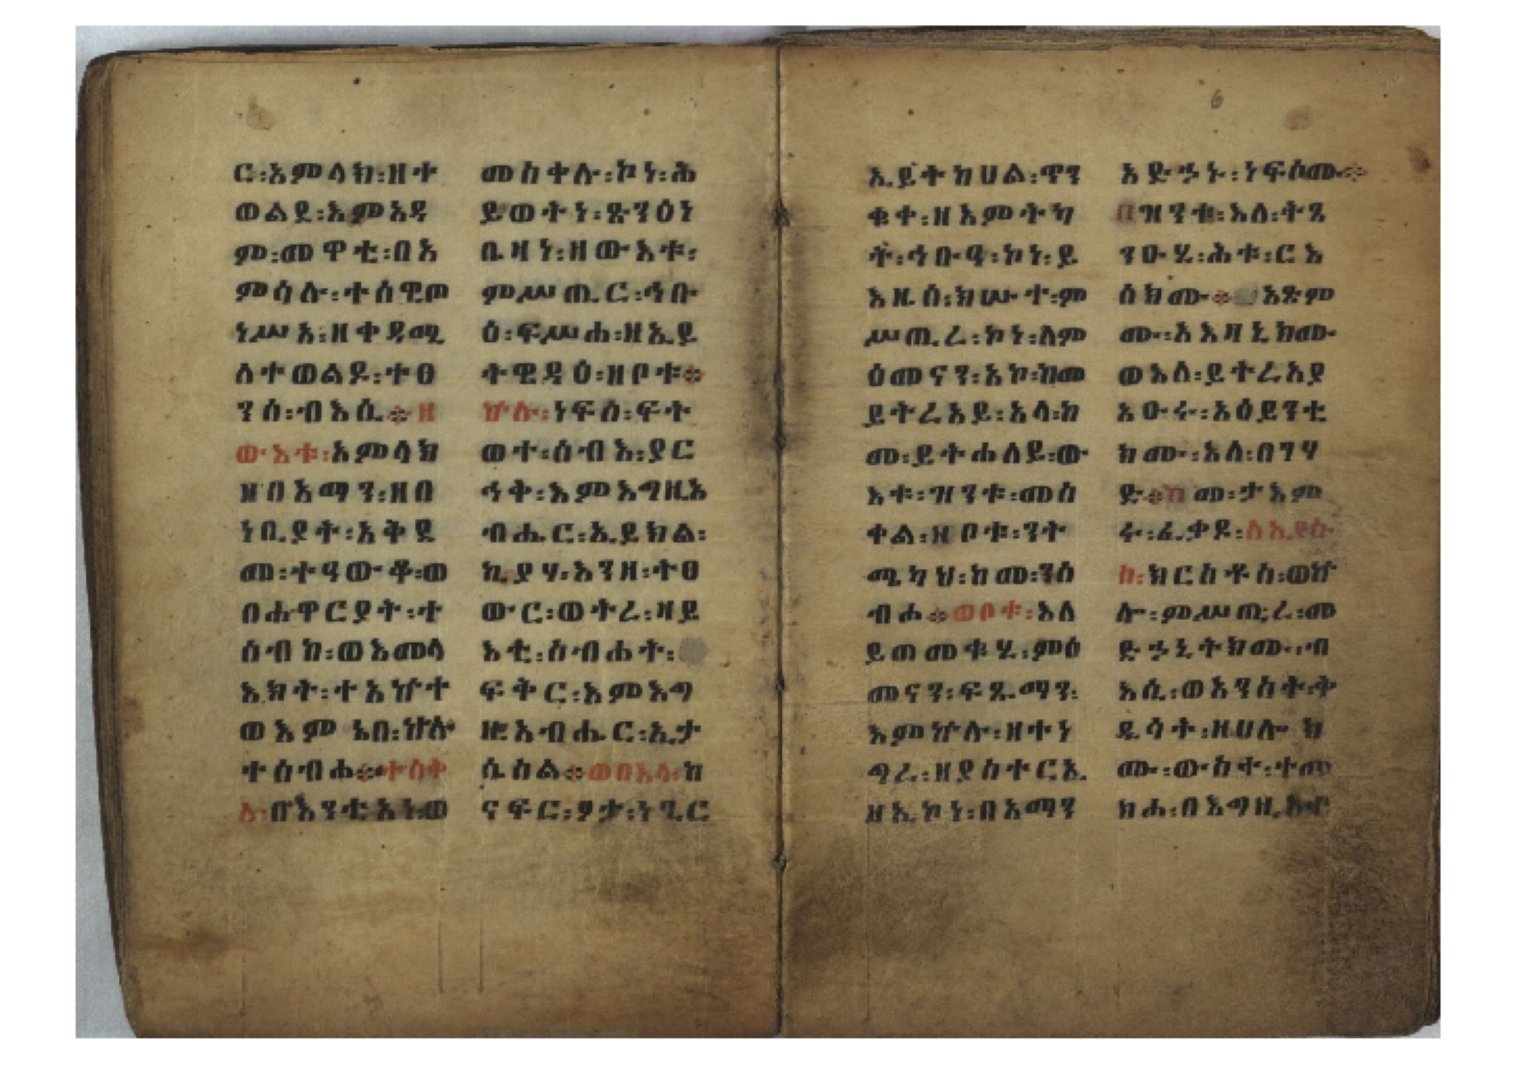 ር፡አምላክ፡ዘተ
ወልደ፡እምአዳ
ም፡መዋቲ፡በአ
ምሳሉ፡ተሰዊጦ
ነሥአ፡ዘቀዳሚ
ለተወልዶ፡ተፀ
ንሰ፡ብእሲ፨ዘ
ውእቱ፡አምላክ
ዘበአማን፡ዘበ
ነቢያት፡አቅደ
መ፡ተዓውቆ፡ወ
በሐዋርያት፡ተ
ሰብከ፡ወእመላ
እክት፡ተአኵተ
ወእም ኀበ፡ኵሉ
ተሰብሐ፨ተሰቀ
ለ፡በእንቲአነ፡ወ
መስቀሉ፡ኮነ፡ሕ
ይወትነ፡ጽንዕነ
ቤዛነ፡ዘውእቱ፡
ምሥጢር፡ኅቡ
ዕ፡ፍሥሐ፡ዘኢይ
ትዌዳዕ፡ዘቦቱ፨
ኵሉ፡ነፍሰ፡ፍት
ወተ፡ሰብእ፡ያር
ኅቅ፡እምእግዚአ
ብሔር፡ኢይክል፡
ኪያሃ፡እንዘ፡ተፀ
ውር፡ወትረ፡ዛይ
እቲ፡ስብሐት፡
ፍቅር፡እምእግ
ዚአብሔር፡ኢታ
ሴስል፨ወበእሉ፡ከ
ናፍር፡ፆታ፡ነጊር
ኢይትከሀል፡ጥን
ቁቀ፡ዘእምትካ
ት፡ኅቡዓ፡ኮነ፡ይ
እዜሰ፡ክሡተ፡ም
ሥጢረ፡ኮነ፡ለም
ዕመናን፡አኮ፡ከመ
ይትረአይ፡አላ፡ከ
መ፡ይትሐለይ፡ው
እቱ፡ዝንቱ፡መስ
ቀል፡ዘቦቱ፡ንት
ሜካህ፡ከመ፡ንሰ
ብሐ፨ወቦቱ፡እለ
ይጠመቁሂ፡ምዕ
መናን፡ፍጹማን፡
እምኵሉ፡ዘተነ
ግረ፡ዘያስተርኢ
ዘኢኮነ፡በአማን
አድኃኑ፡ነፍሶሙ፨
በዝንቱ፡እለ፡ትጼ
ንዑሂ፡ሕቱ፡ርእ
ሰክሙ፨አጽም
ሙ፡አእዛኒክሙ
ወእለ፡ይትረአያ
አዑሩ፡አዕይንቲ
ክሙ፡እለ፡በገሃ
ድ፨ከመ፡ታእም
ሩ፡ፈቃዶ፡ለኢየሱ
ስ፡ክርስቶስ፡ወኵ
ሎ፡ምሥጢረ፡መ
ድኃኒትክሙ፡ብ
እሲ፡ወአንስት፡ቅ
ዱሳት፡ዘሀሎ ክ
ሙ፡ውስተ፡ተመ
ክሐ፡በእግዚአ